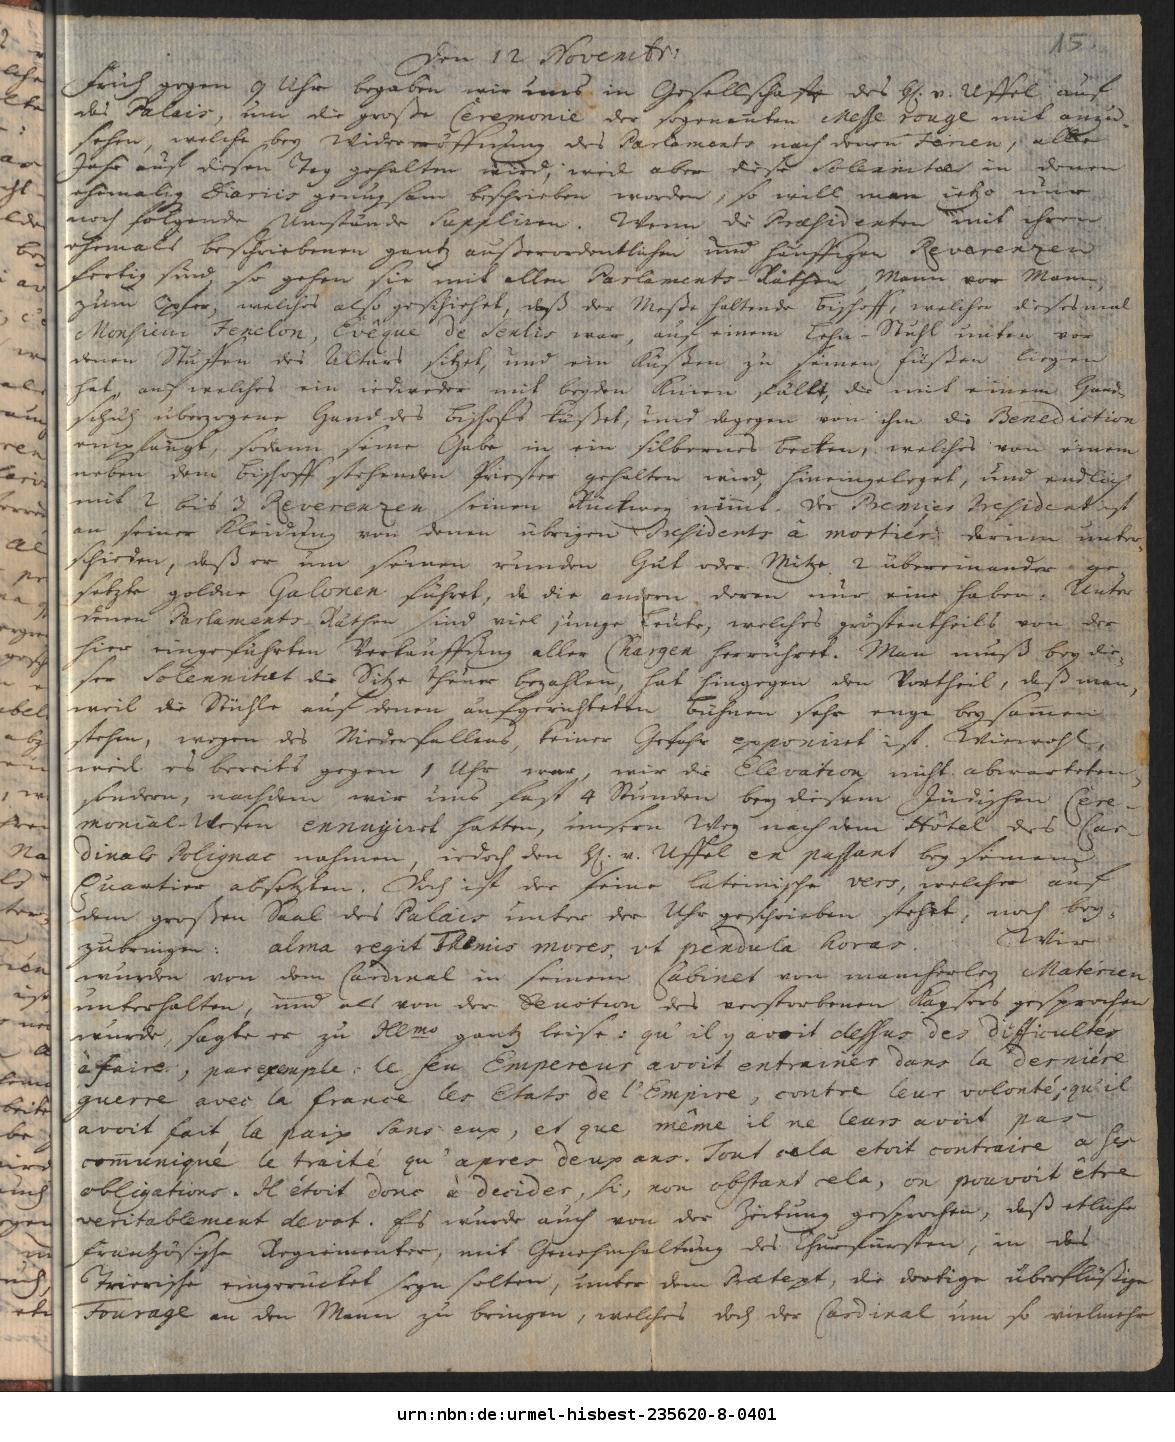 15.
Den 12 Novembr:
Früh gegen 9 Uhr begaben wir uns in Gesellschafft des H. v. Uffel auf
das Palais, um die große Ceremonie der sogenannten Messe rouge mit anzu-
sehen, welche bey Wiedereröffnung des Parlaments nach denen Ferien, alle
Jahr auf diesen Tag gehalten wird; weil aber diese Solennitæt in denen
ehemalig Diariis genugsam beschrieben worden, so will man ietzo nur
noch folgende Umstände suppliren. Wenn die Præsidenten mit ihren
ehemals beschriebenen gantz außerordentlichen und häuffigen Reverenzen
fertig sind, so gehen sie mit allen Parlaments-Räthen, Mann vor Mann,
zum Opfer, welches also geschiehet, daß der Meße haltende Bischoff, welcher diesesmal
Monsieur Fenelon, Evêque de Senlis war, auf einem Lehn-Stuhl unten vor
denen Stuffen des Altars sitzet, und ein Küßen zu seinen Füßen liegen
hat, auf welches ein iedweder mit beyden Knien fällt, die mit einem Hand-
schuh überzogene Hand des Bischofs küßet, und dagegen von ihm die Benediction
empfängt, sodann seine Gabe in ein silbernes Becken, welches von einem
neben dem Bischoff stehenden Priester gehalten wird, hineingeleget, und endlich
mit 2 bis 3 Reverenzen seinen Rückweg nimt. Der Premier President ist
an seiner Kleidung von denen übrigen Presidents à mortier darinn unter-
schieden, daß er um seinen runden Hut oder Mütze 2 übereinander ge-
setzte goldne Galonen führet, da die andren deren nur eine haben. Unter
denen Parlaments-Räthen sind viel junge Leute, welches gröstentheils von der
hier eingeführten Verkauffung aller Chargen herrühret. Man muß bey die-
ser Solennitæt die Sitze theuer bezahlen, hat hingegen den Vortheil, daß man,
weil die Stühle auf denen aufgerichteten Bühnen sehr enge beysamen
stehen, wegen des Niederfallens, keiner Gefahr exponiret ist. Wiewohl,
weil es bereits gegen 1 Uhr war, wir die Elevation nicht abwarteten,
sondern, nachdem wir uns fast 4 Stunden bey diesem Jüdischen Cere-
monial-Wesen ennuyiret hatten, unsern Weg nach dem Hôtel des Car-
dinals Polignac nahmen, iedoch den H. v. Uffel en passant bey seinem
Quartier absetzten. Noch ist der feine lateinische vers, welcher auf
dem großen Saal des Palais unter der Uhr geschrieben stehet, noch bey-
zubringen: alma regit Themis mores, ut pendula horas. Wir
wurden von dem Cardinal in seinem Cabinet von mancherley Materien
unterhalten, und als von der Devotion des verstorbenen Kaysers gesprochen
wurde, sagte er zu Illmo gantz leise: qu'il y avoit dessus des difficultes
à faire, par exemple: le feu Empereur avoit entrainés dans la derniére
guerre avec la france les Etats de l'Empire, contre leur volonté; qu'il
avoit fait la paix sans eux, et que même il ne leurs avoit pas
comuniqué le traité qu'apres deux ans. Tout cela etoit contraire a ses
obligations. Il étoit donc à decider, si, non obstant cela, on pouvoit être
veritablement devot. Es wurde auch von der Zeitung gesprochen, daß etliche
Frantzösische Regimenter, mit Genehmhaltung des Churfürsten, in das
Trierische eingerücket seyn solten, unter dem Prætext, die dortige überflüßige
Fourage an den Mann zu bringen, welches doch der Cardinal um so vielmehr
urn:nbn:de:urmel-hisbest-235620-8-0401